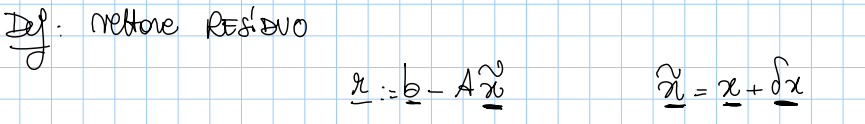 Def: vettore RESIDUO
r := b - Ax̃ x̃ = x + δx